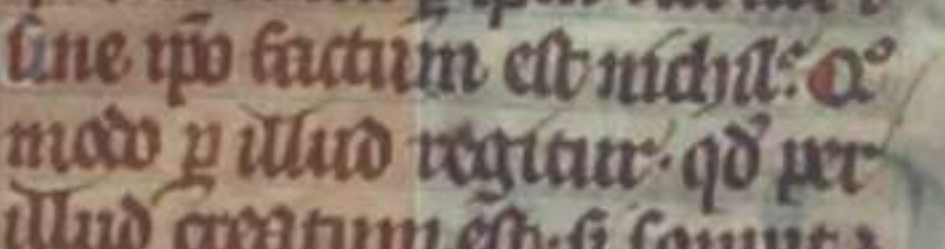 sine ip̄o factum est nichil: Qͦ
modo ꝑ illud regitur · qđ per
illud creatum est · S̄